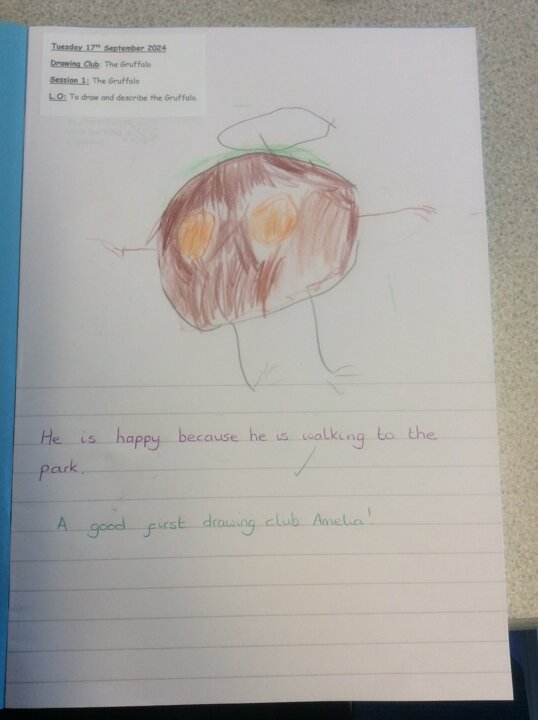 Tuesday 17th September 2024
Drawing Club: The Gruffalo
Session 1: The Gruffalo
L.O: To draw and describe the Gruffalo.
He is happy because he is walking to the
park.
A good first drawing club Amelia!